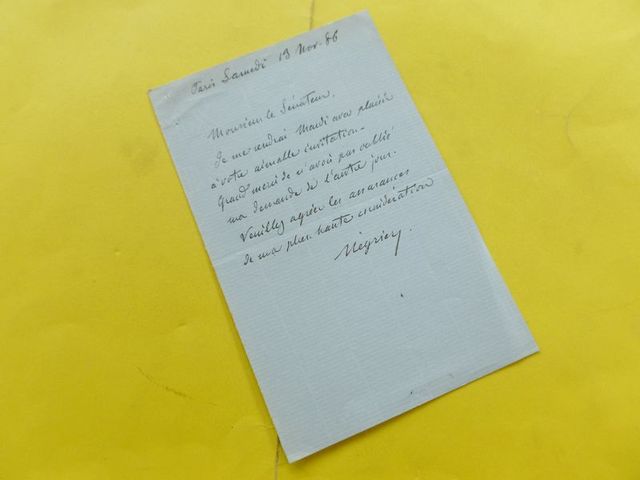 Paris Samedi 13 Nov. 86
Monsieur le Sénateur,
Je me rendrai Mardi avec plaisir
à votre aimable invitation.
Grand merci de n'avoir pas oublié
ma demande de l'autre jour.
Veuillez agréer les assurances
de ma plus haute considération
Négrier.